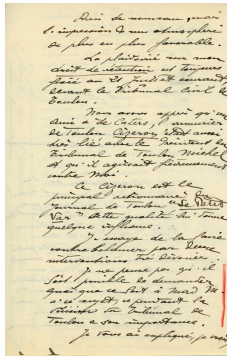 Puis de nouveau, mais
l'impression d'une atmosphère
de plus en plus favorable.
La plaidoirie sur mon
droit de rétention est toujours
fixée au 21 Juillet courant
devant le Tribunal Civil de
Toulon.
Nous avons appris qu'un
ami à de Cuers, armurier
de Toulon était aussi
très lié avec le Président du
Tribunal de Toulon
et qu'il agirait
contre moi.
Ce est le
principal actionnaire du
journal de Toulon "Le Petit
Var". Cette qualité lui donne
quelque influence.
J'essaye de la faire
contrebalancer par deux
interventions très
Je ne pense pas qu'il
soit possible de demander
quoi que ce soit à Mad M
à ce sujet, cependant la
du Tribunal de
Toulon a son importance.
Je vous ai expliqué, je crois